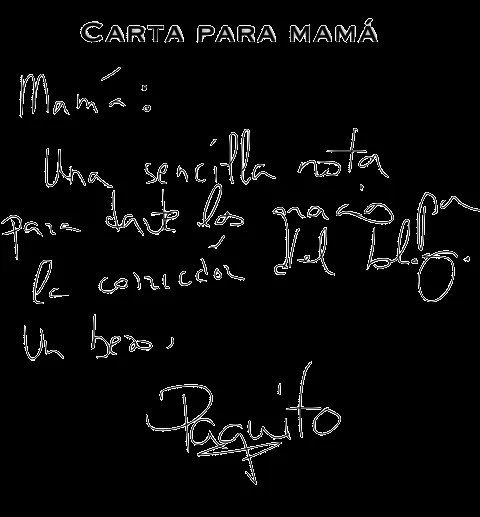 CARTA PARA MAMÁ
Mamá:
Una sencilla nota
para darte las gracias por
la corrección del blog.
Un beso,
Paquito